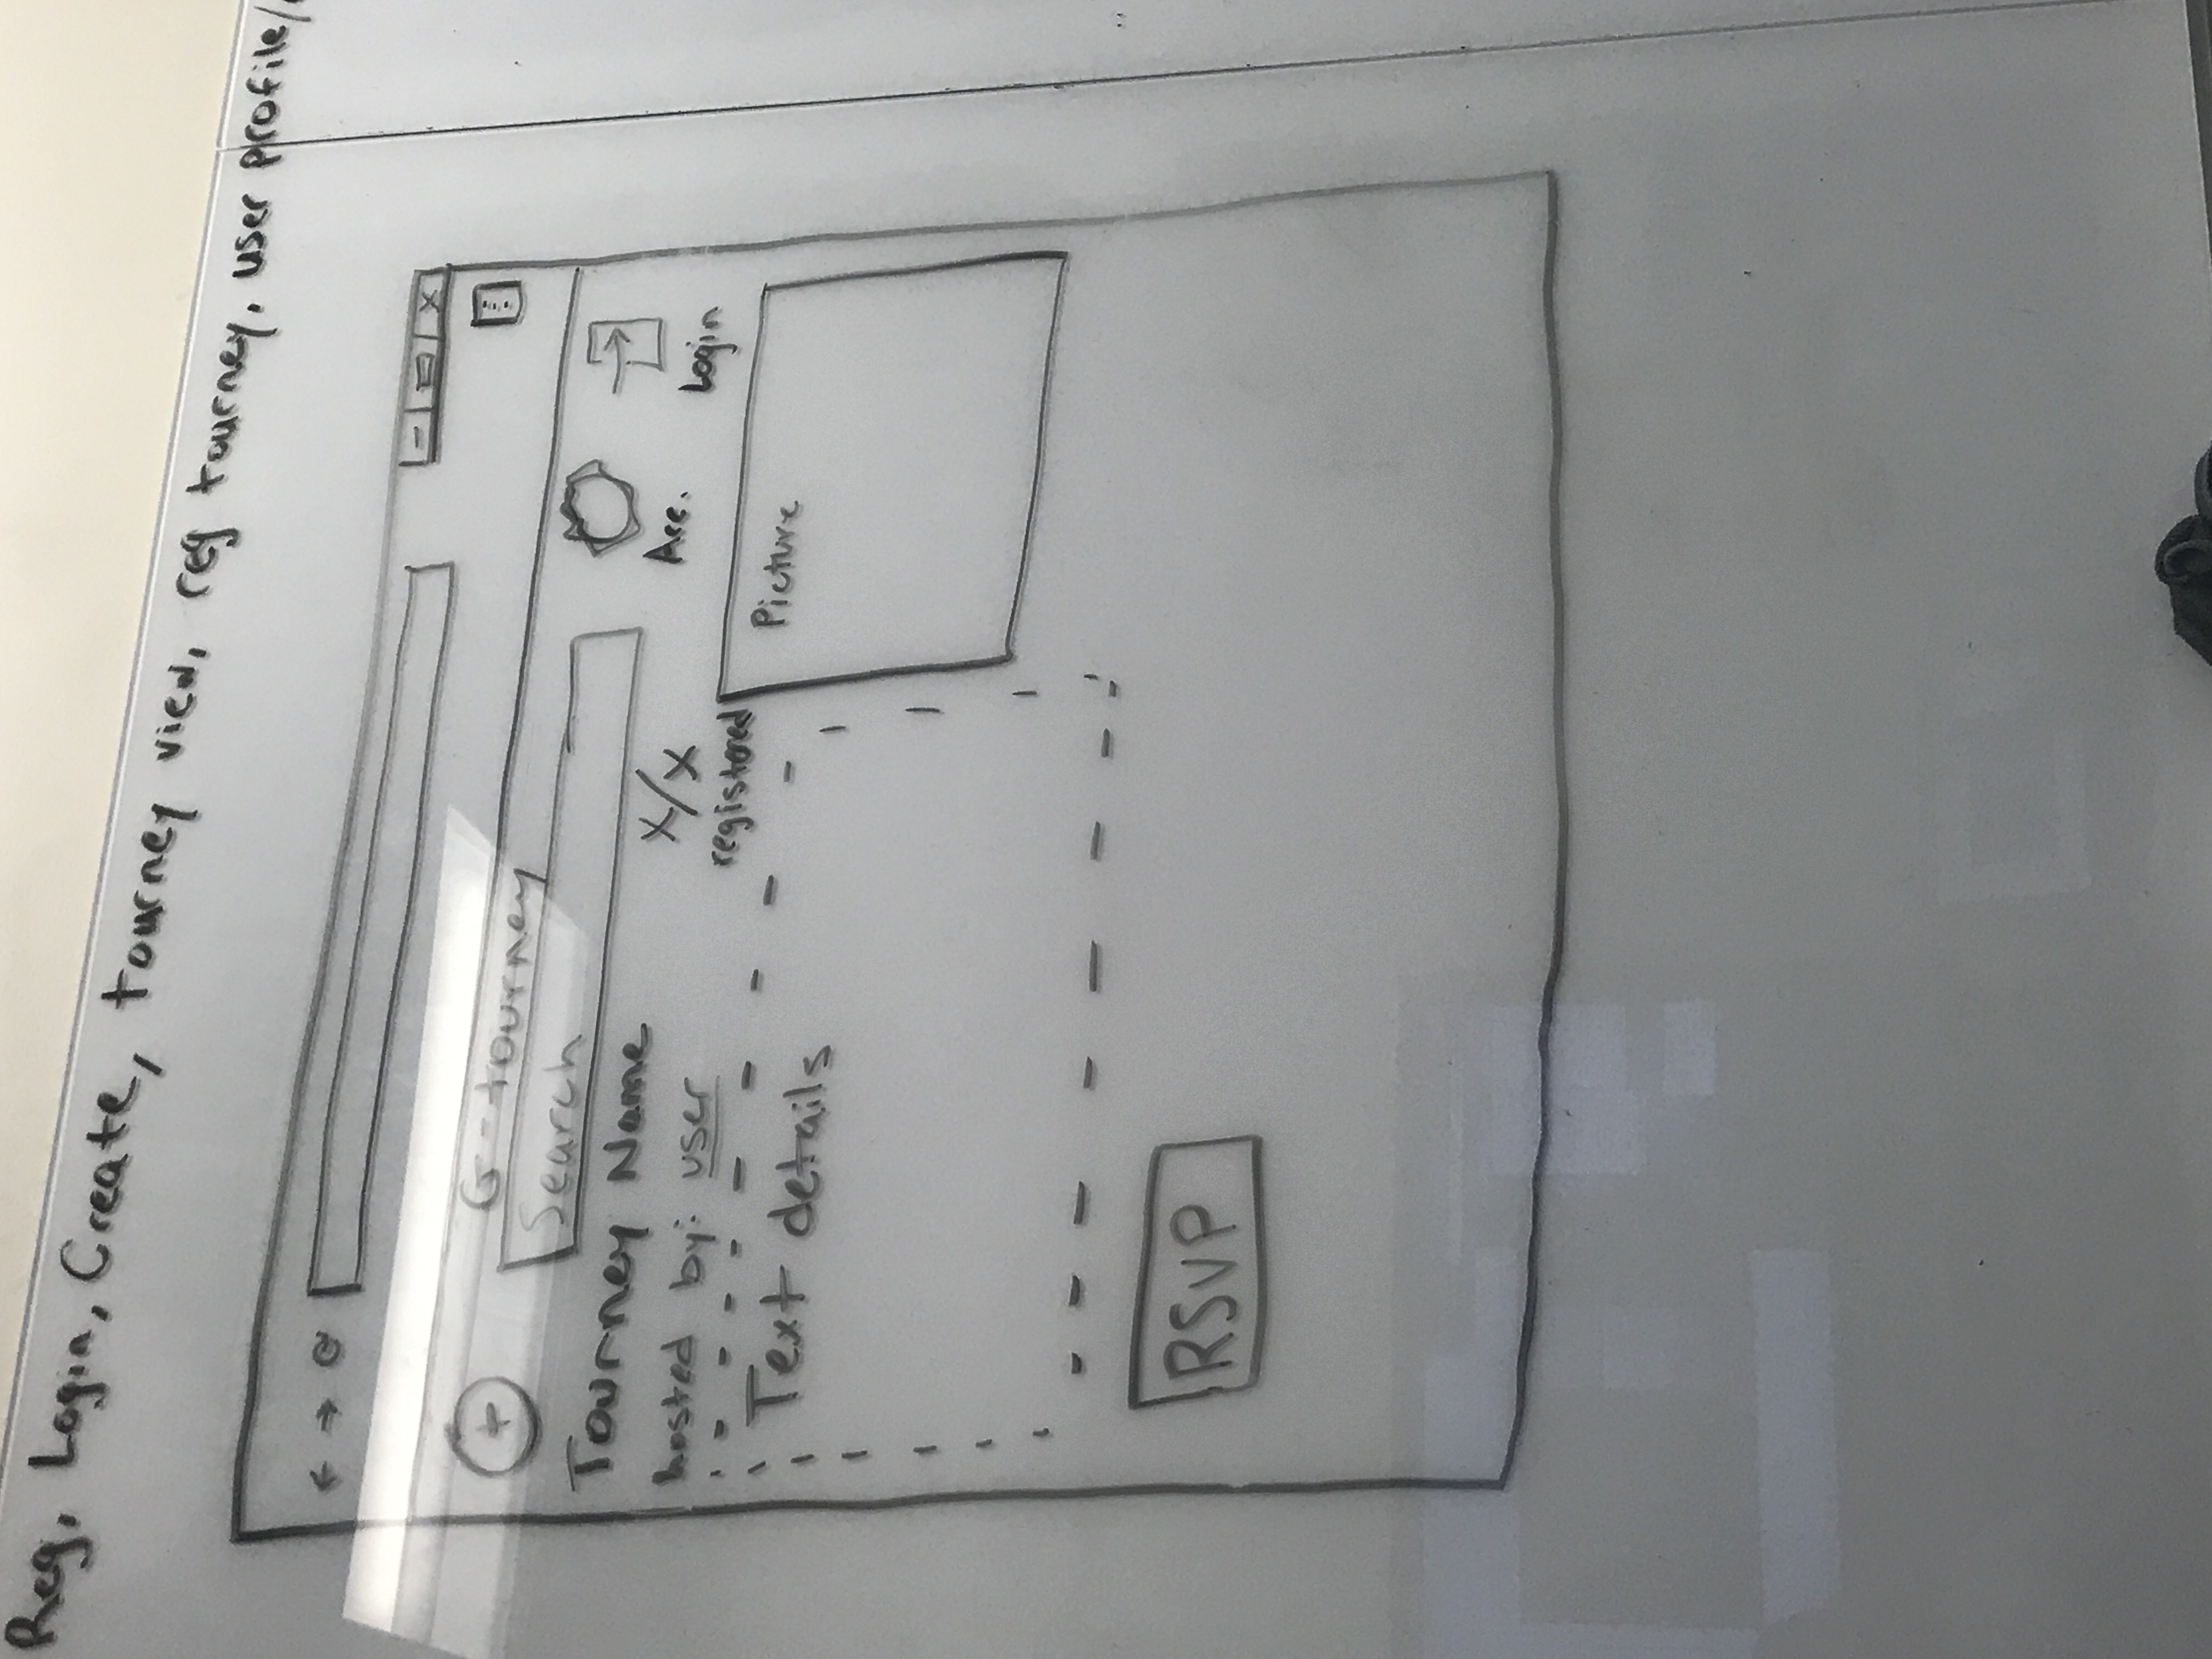 Reg, Login, Create, tourney view, reg tourney, user profile/
G-tourney
Search
Tourney Name
hosted by: user
X/X
registered
Acc.
Login
Text details
Picture
RSVP